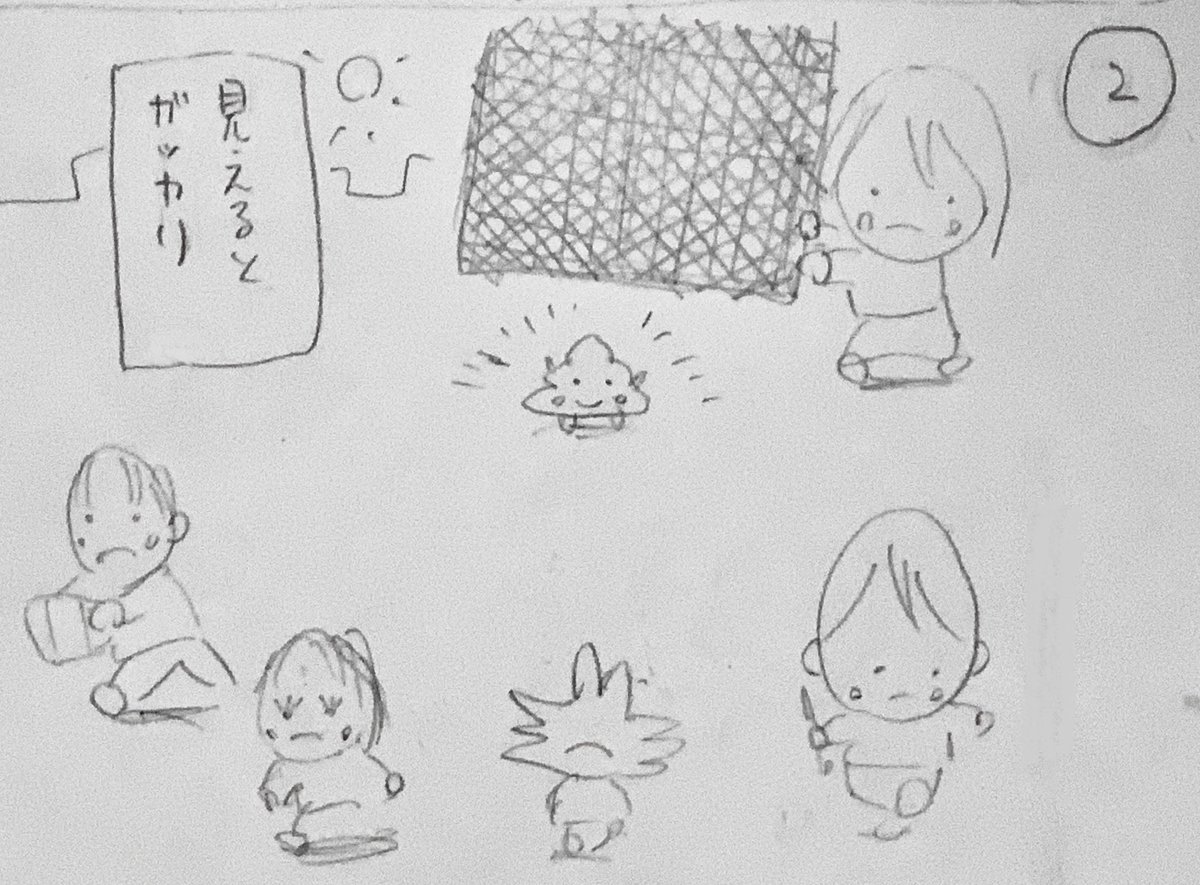 2
見えると
ガッカリ